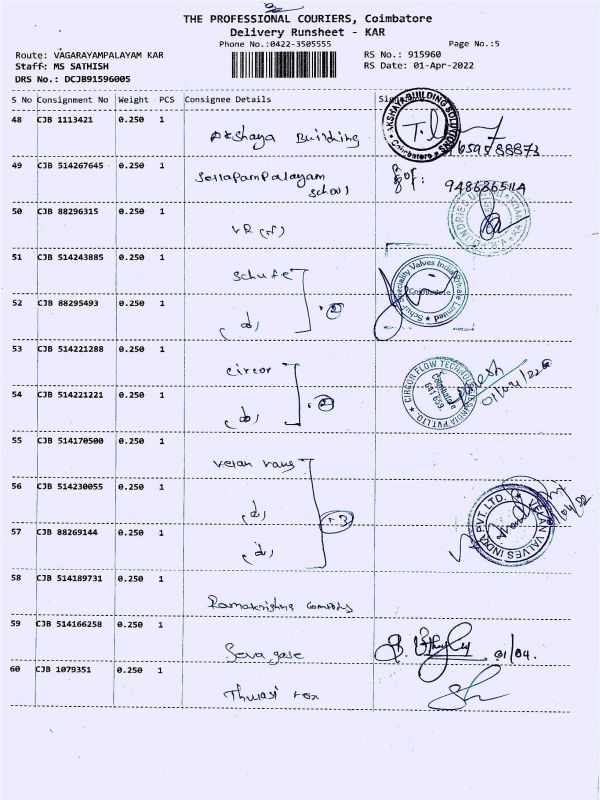 THE PROFESSIONAL COURIERS, Coimbatore
Delivery Runsheet - KAR
Phone No.:0422-3505555
Page No.:5
Route: VAGARAYAMPALAYAM KAR
RS No.: 915960
Staff: MS SATHISH
RS Date: 01-Apr-2022
DRS No.: DCJB91596005
S No Consignment No Weight PCS Consignee Details
48 CJB 1113421 0.250 1
Akshaya Building
AKSHAYA BUILDING SOLUTIONS
Coimbatore
49 CJB 514267645 0.250 1
School
9486865114
50 CJB 88296315 0.250 1
VR
51 CJB 514243885 0.250 1
Speciality Valves India Private Limited
Coimbatore
52 CJB 88295493 0.250 1
2
53 CJB 514221288 0.250 1
circor
CIRCOR FLOW TECHNOLOGIES INDIA PVT LTD.
Coimbatore
641 659.
54 CJB 514221221 0.250 1
2
55 CJB 514170500 0.250 1
56 CJB 514230055 0.250 1
3
VELAN VALVES INDIA PVT. LTD.
57 CJB 88269144 0.250 1
58 CJB 514189731 0.250 1
Ramakrishna
59 CJB 514166258 0.250 1
Seva
01/04.
60 CJB 1079351 0.250 1